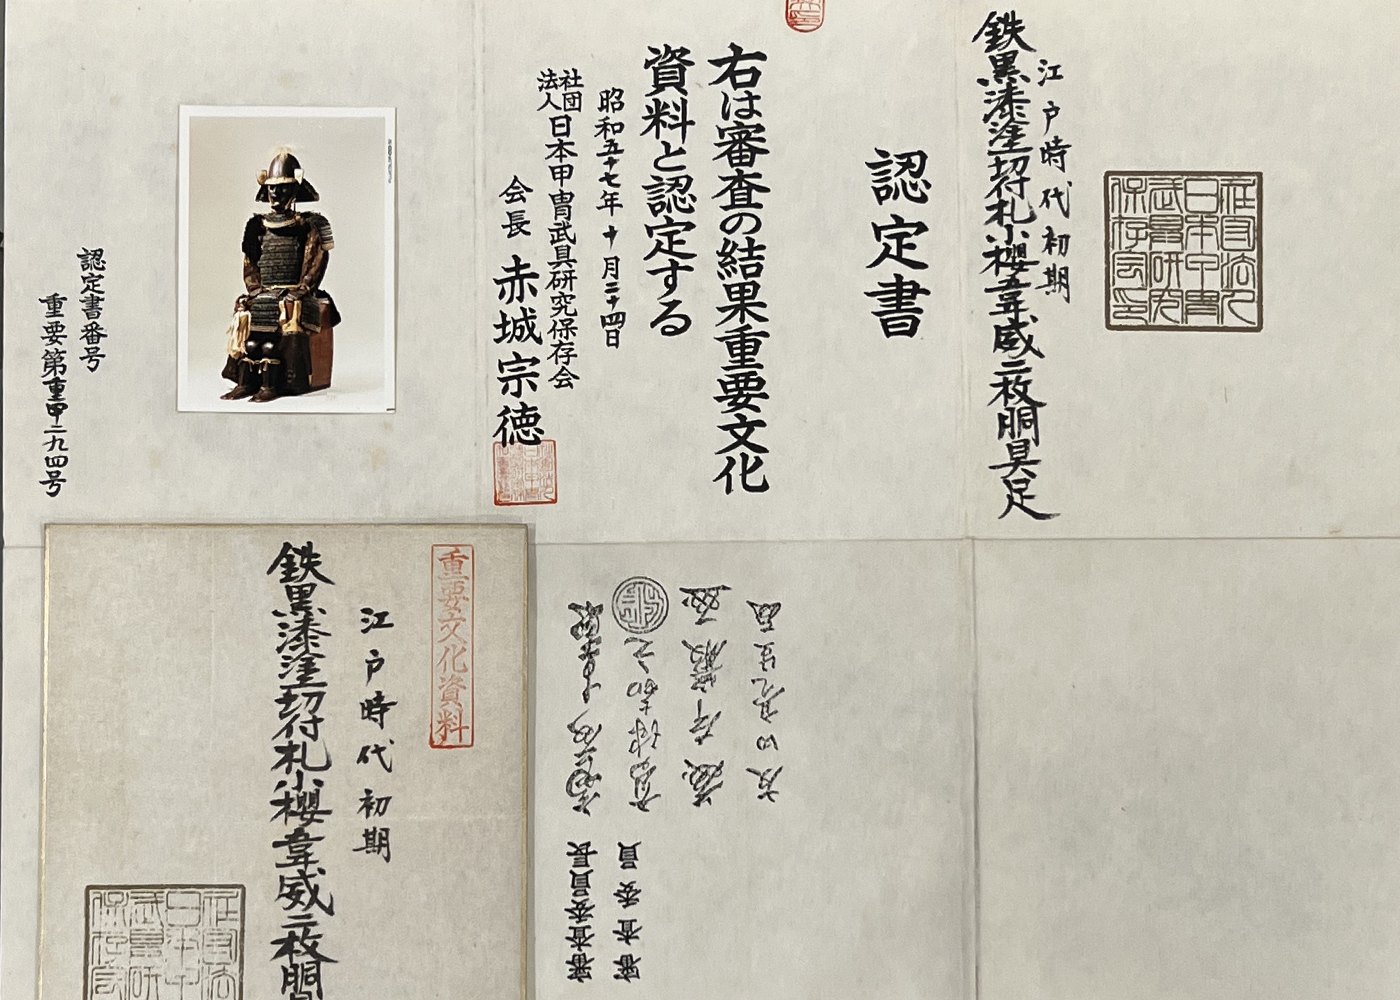 鉄黒漆塗切付札小櫻韋威二枚胴具足
江戸時代初期
社団法人
日本甲冑
武具研究
保存会印
認定書
右は審査の結果重要文化
資料と認定する
昭和五十七年十月二十四日
社団法人日本甲冑武具研究保存会
会長 赤城宗徳
認定書番号
重要第重甲二九四号
重要文化資料
江戸時代初期
鉄黒漆塗切付札小櫻韋威二枚胴
審査委員長
審査委員